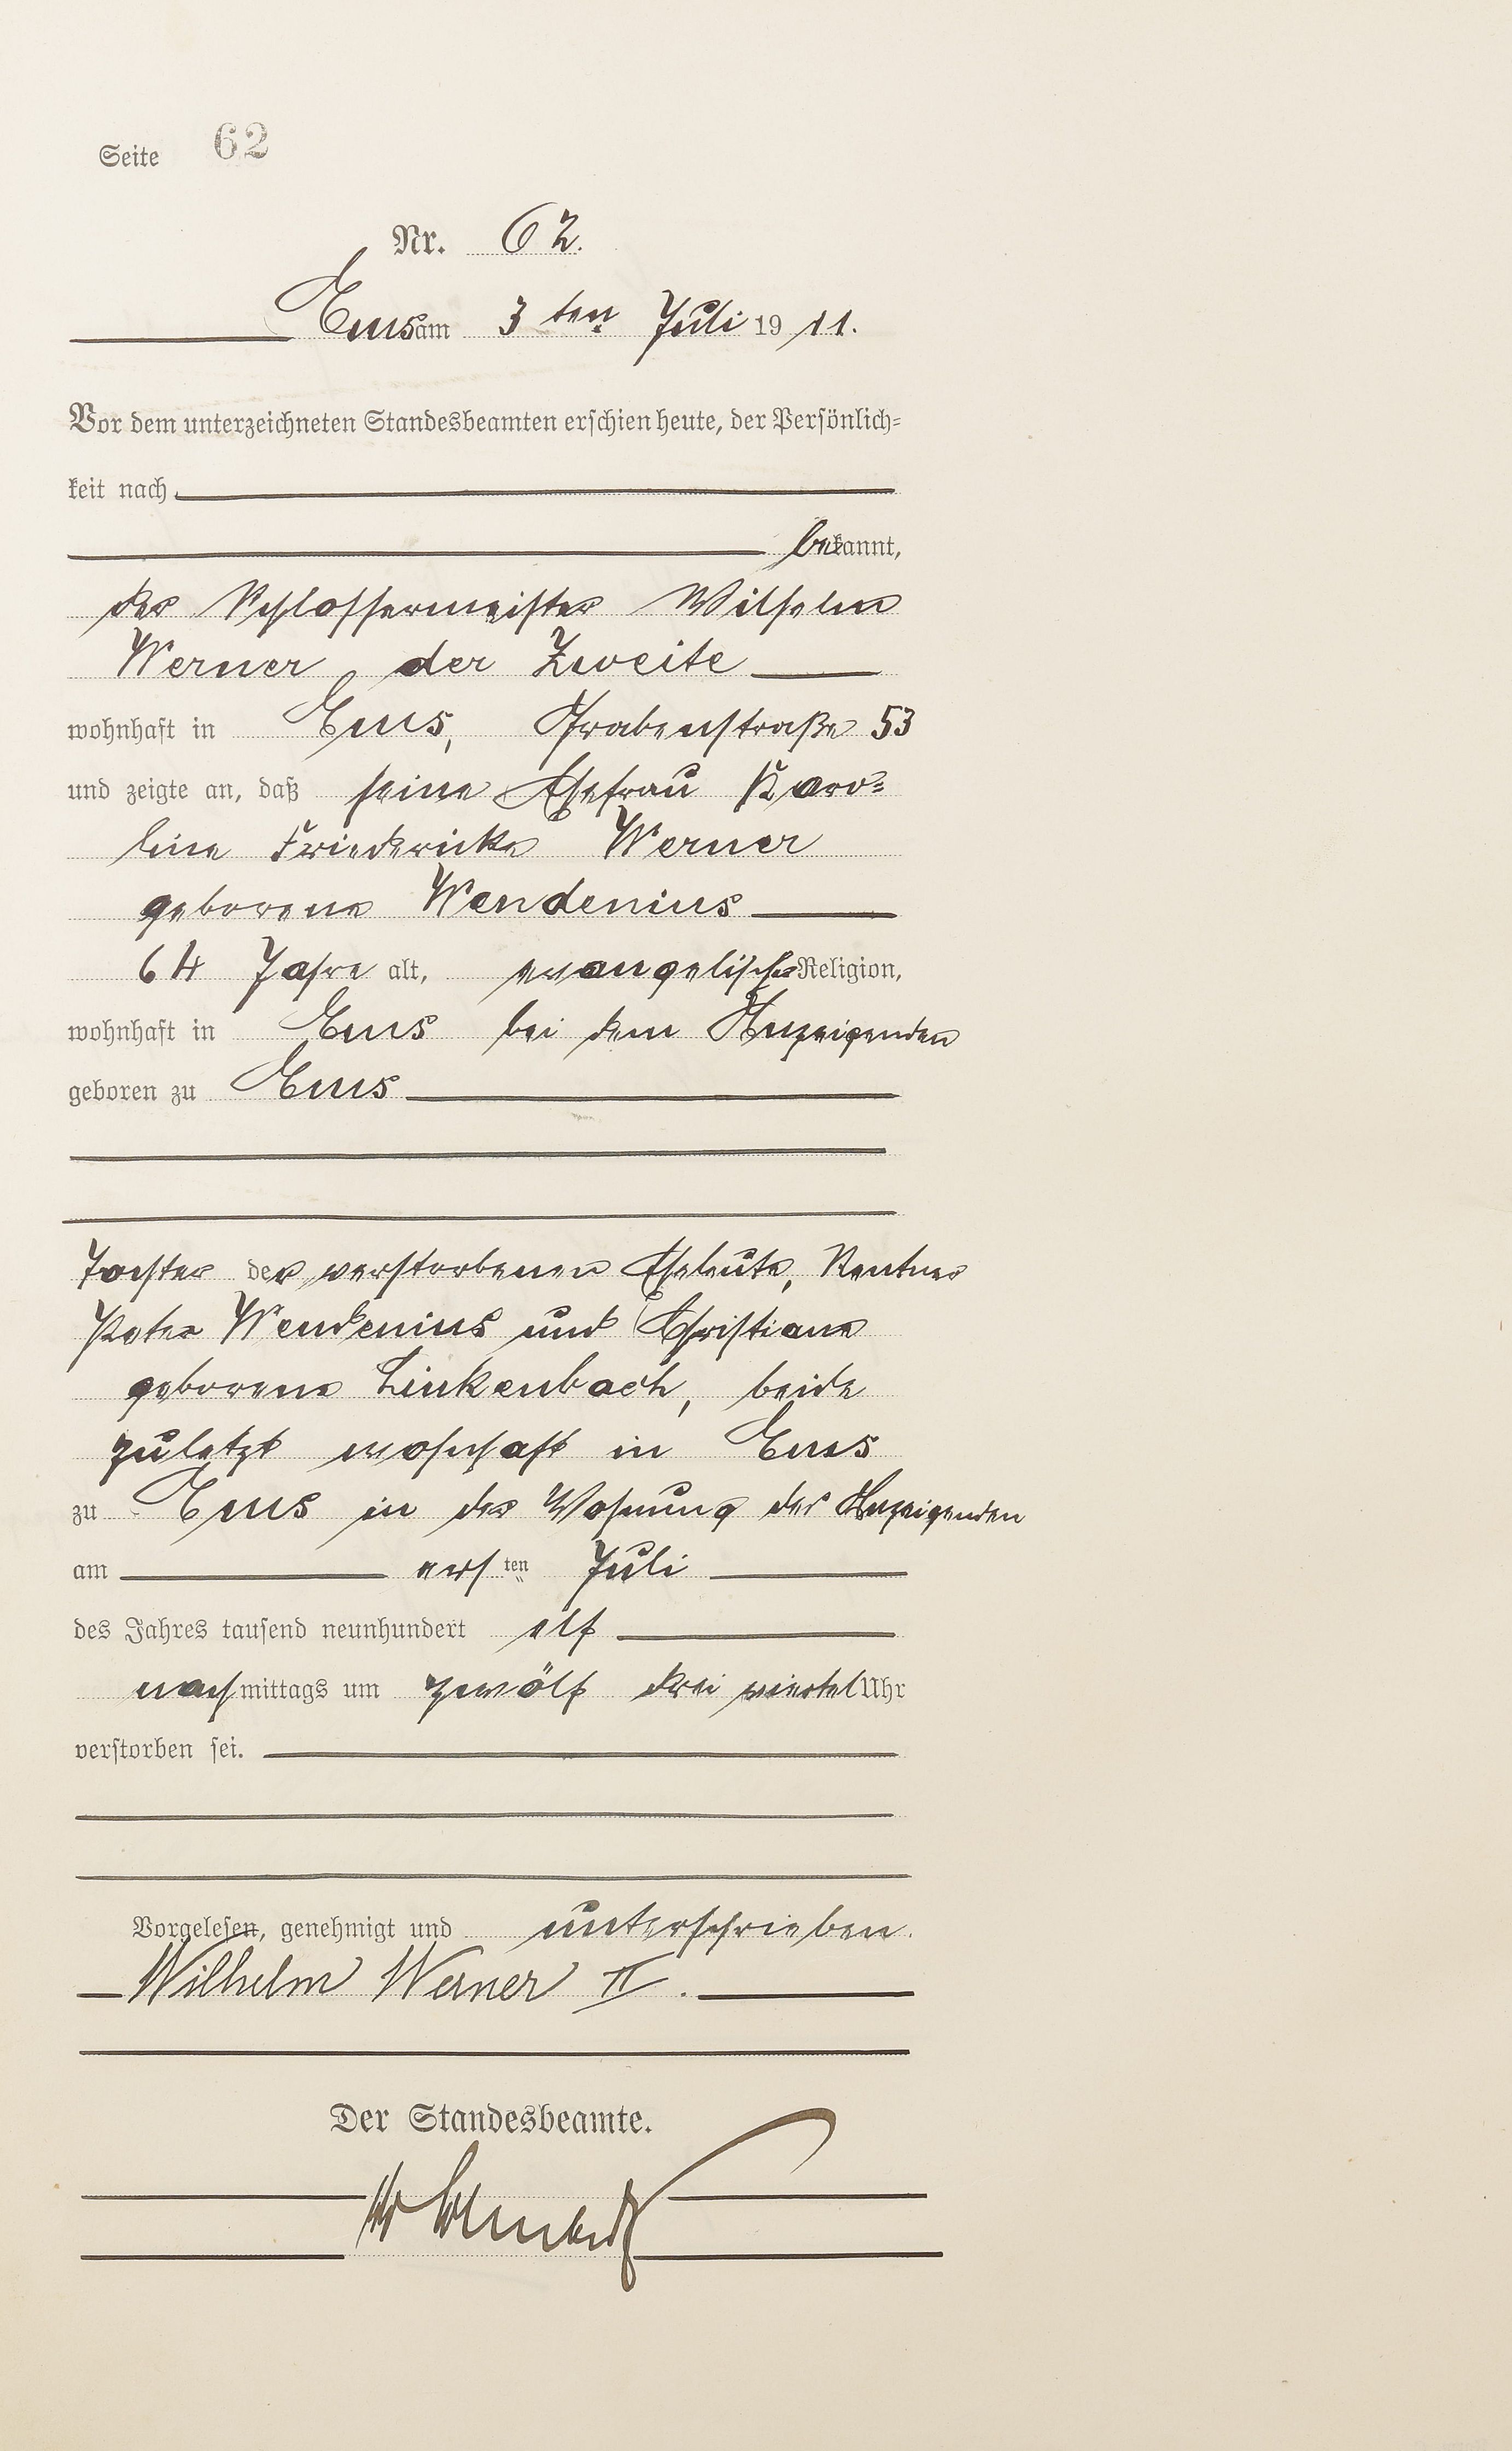 Seite 62
Nr. 62.
Ems am 3ten Juli 19 11.
Vor dem unterzeichneten Standesbeamten erschien heute, der Persönlich-
keit nach
bekannt,
der Schlossermeister Wilhelm
Werner der Zweite
wohnhaft in Ems, Grabenstraße 53
und zeigte an, daß seine Ehefrau Karo-
line Friedericke Werner
geborene Wendenius
64 Jahre alt, evangelischer Religion,
wohnhaft in Ems bei dem Anzeigenden
geboren zu Ems
Tochter der verstorbenen Eheleute, Rentner
Peter Wendenius und Christiane
geborene Linkenbach, beide
zuletzt wohnhaft in Ems
zu Ems in der Wohnung des Anzeigenden
am ersten Juli
des Jahres tausend neunhundert elf
nachmittags um zwölf drei viertel Uhr
verstorben sei.
Vorgelesen, genehmigt und unterschrieben.
Wilhelm Werner II.
Der Standesbeamte.